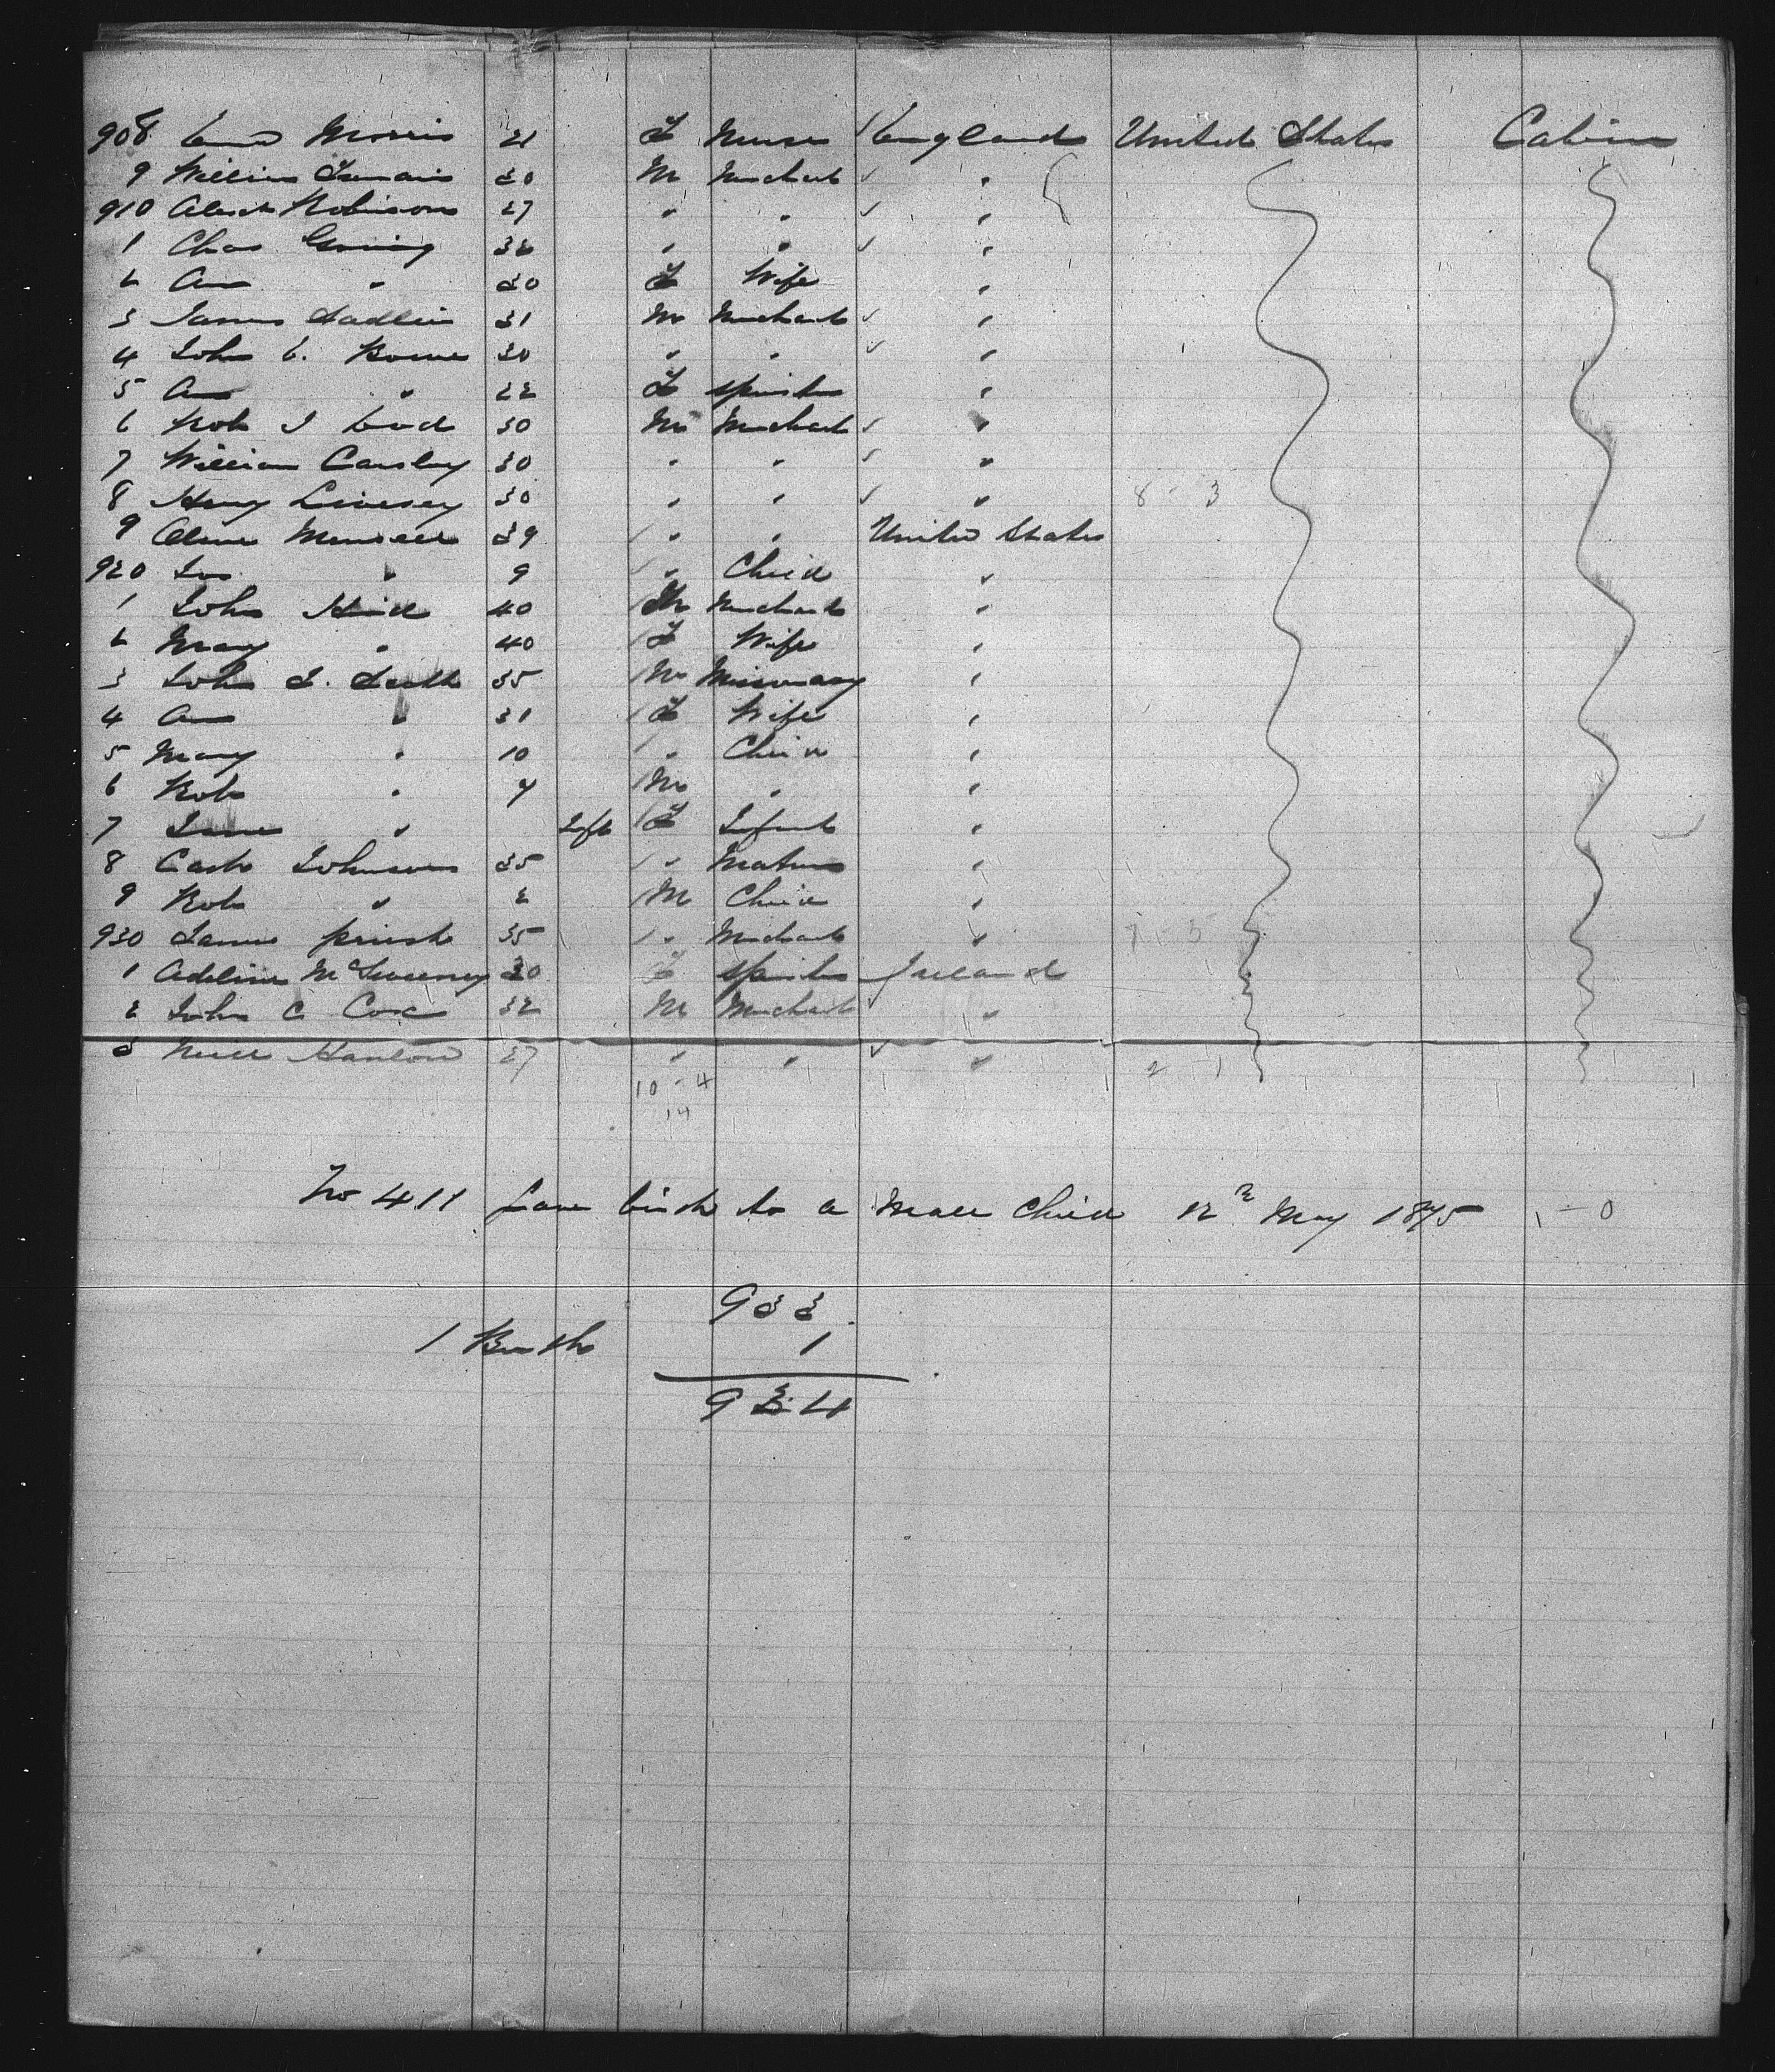 908 Morris 21 F Nurse England United States Cabin
9 William 30 M Merchant "
910 Robinson 27 " " "
1 Chas 32 " " "
2 Ann " 30 F Wife "
3 James 31 M Merchant "
4 John E. 30 " " "
5 Ann " 22 F Spinster "
6 Rob J 30 M Merchant "
7 William 30 " " "
8 Henry Livesey 30 " " " 8 - 3
9 39 " " United States
920 Jas " 9 " Child "
1 John 40 M Merchant "
2 Mary " 40 F Wife "
3 John S. 35 M Missionary "
4 Ann " 31 F Wife "
5 Mary " 10 " Child "
6 Rob " 7 M " "
7 Jane " F Infant "
8 Cath Johnson 35 " Matron "
9 Rob " 2 M Child "
930 James Priest 35 " Merchant " 7 - 5
1 Adeline McSweeney 20 F Spinster Ireland
2 John C Cox 32 M Merchant "
3 Hanlon 27 " " " 2 - 1
10 - 4
14
No 411 Gave birth to a Male Child 12 May 1875 1 - 0
933
1 Birth 1
934